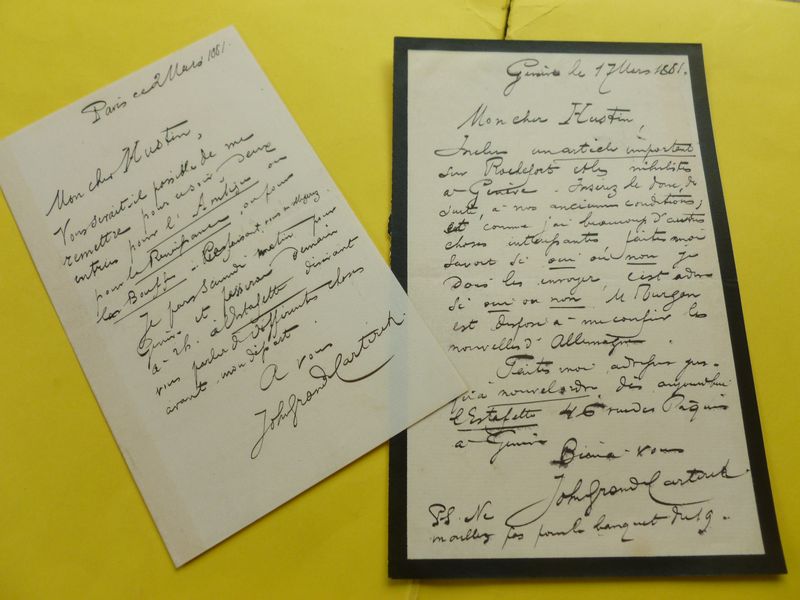 Paris ce 2 Mars 1881.
Mon cher Hustin,
Vous serait-il possible de me
remettre pour ce soir deux
entrées pour l'Ambigu ou
pour la Renaissance, ou pour
les Bouffes - Ce faisant, vous m'obligerez.
Je pars samedi matin pour
Genève et passerai demain
à 2h. à l'Estafette désirant
vous parler de différentes choses
avant mon départ
A vous
John Grand-Carteret
Genève le 17 Mars 1881.
Mon cher Hustin,
Inclus un article important
sur Rochefort et les nihilistes
à Genève. Insérez le donc, de
suite, à nos anciennes conditions,
et comme j'ai beaucoup d'autres
choses intéressantes faites moi
savoir si oui ou non je
dois les envoyer, c'est à dire
si oui ou non M.
est disposé à me confier les
nouvelles d'Allemagne.
Faites moi adresser jus-
qu'à nouvel ordre, dès aujourd'hui
l'Estafette 46 rue des Pâquis
à Genève
Bien à vous
John Grand-Carteret
P.S. Ne
m'oubliez pas pour le banquet du 19.